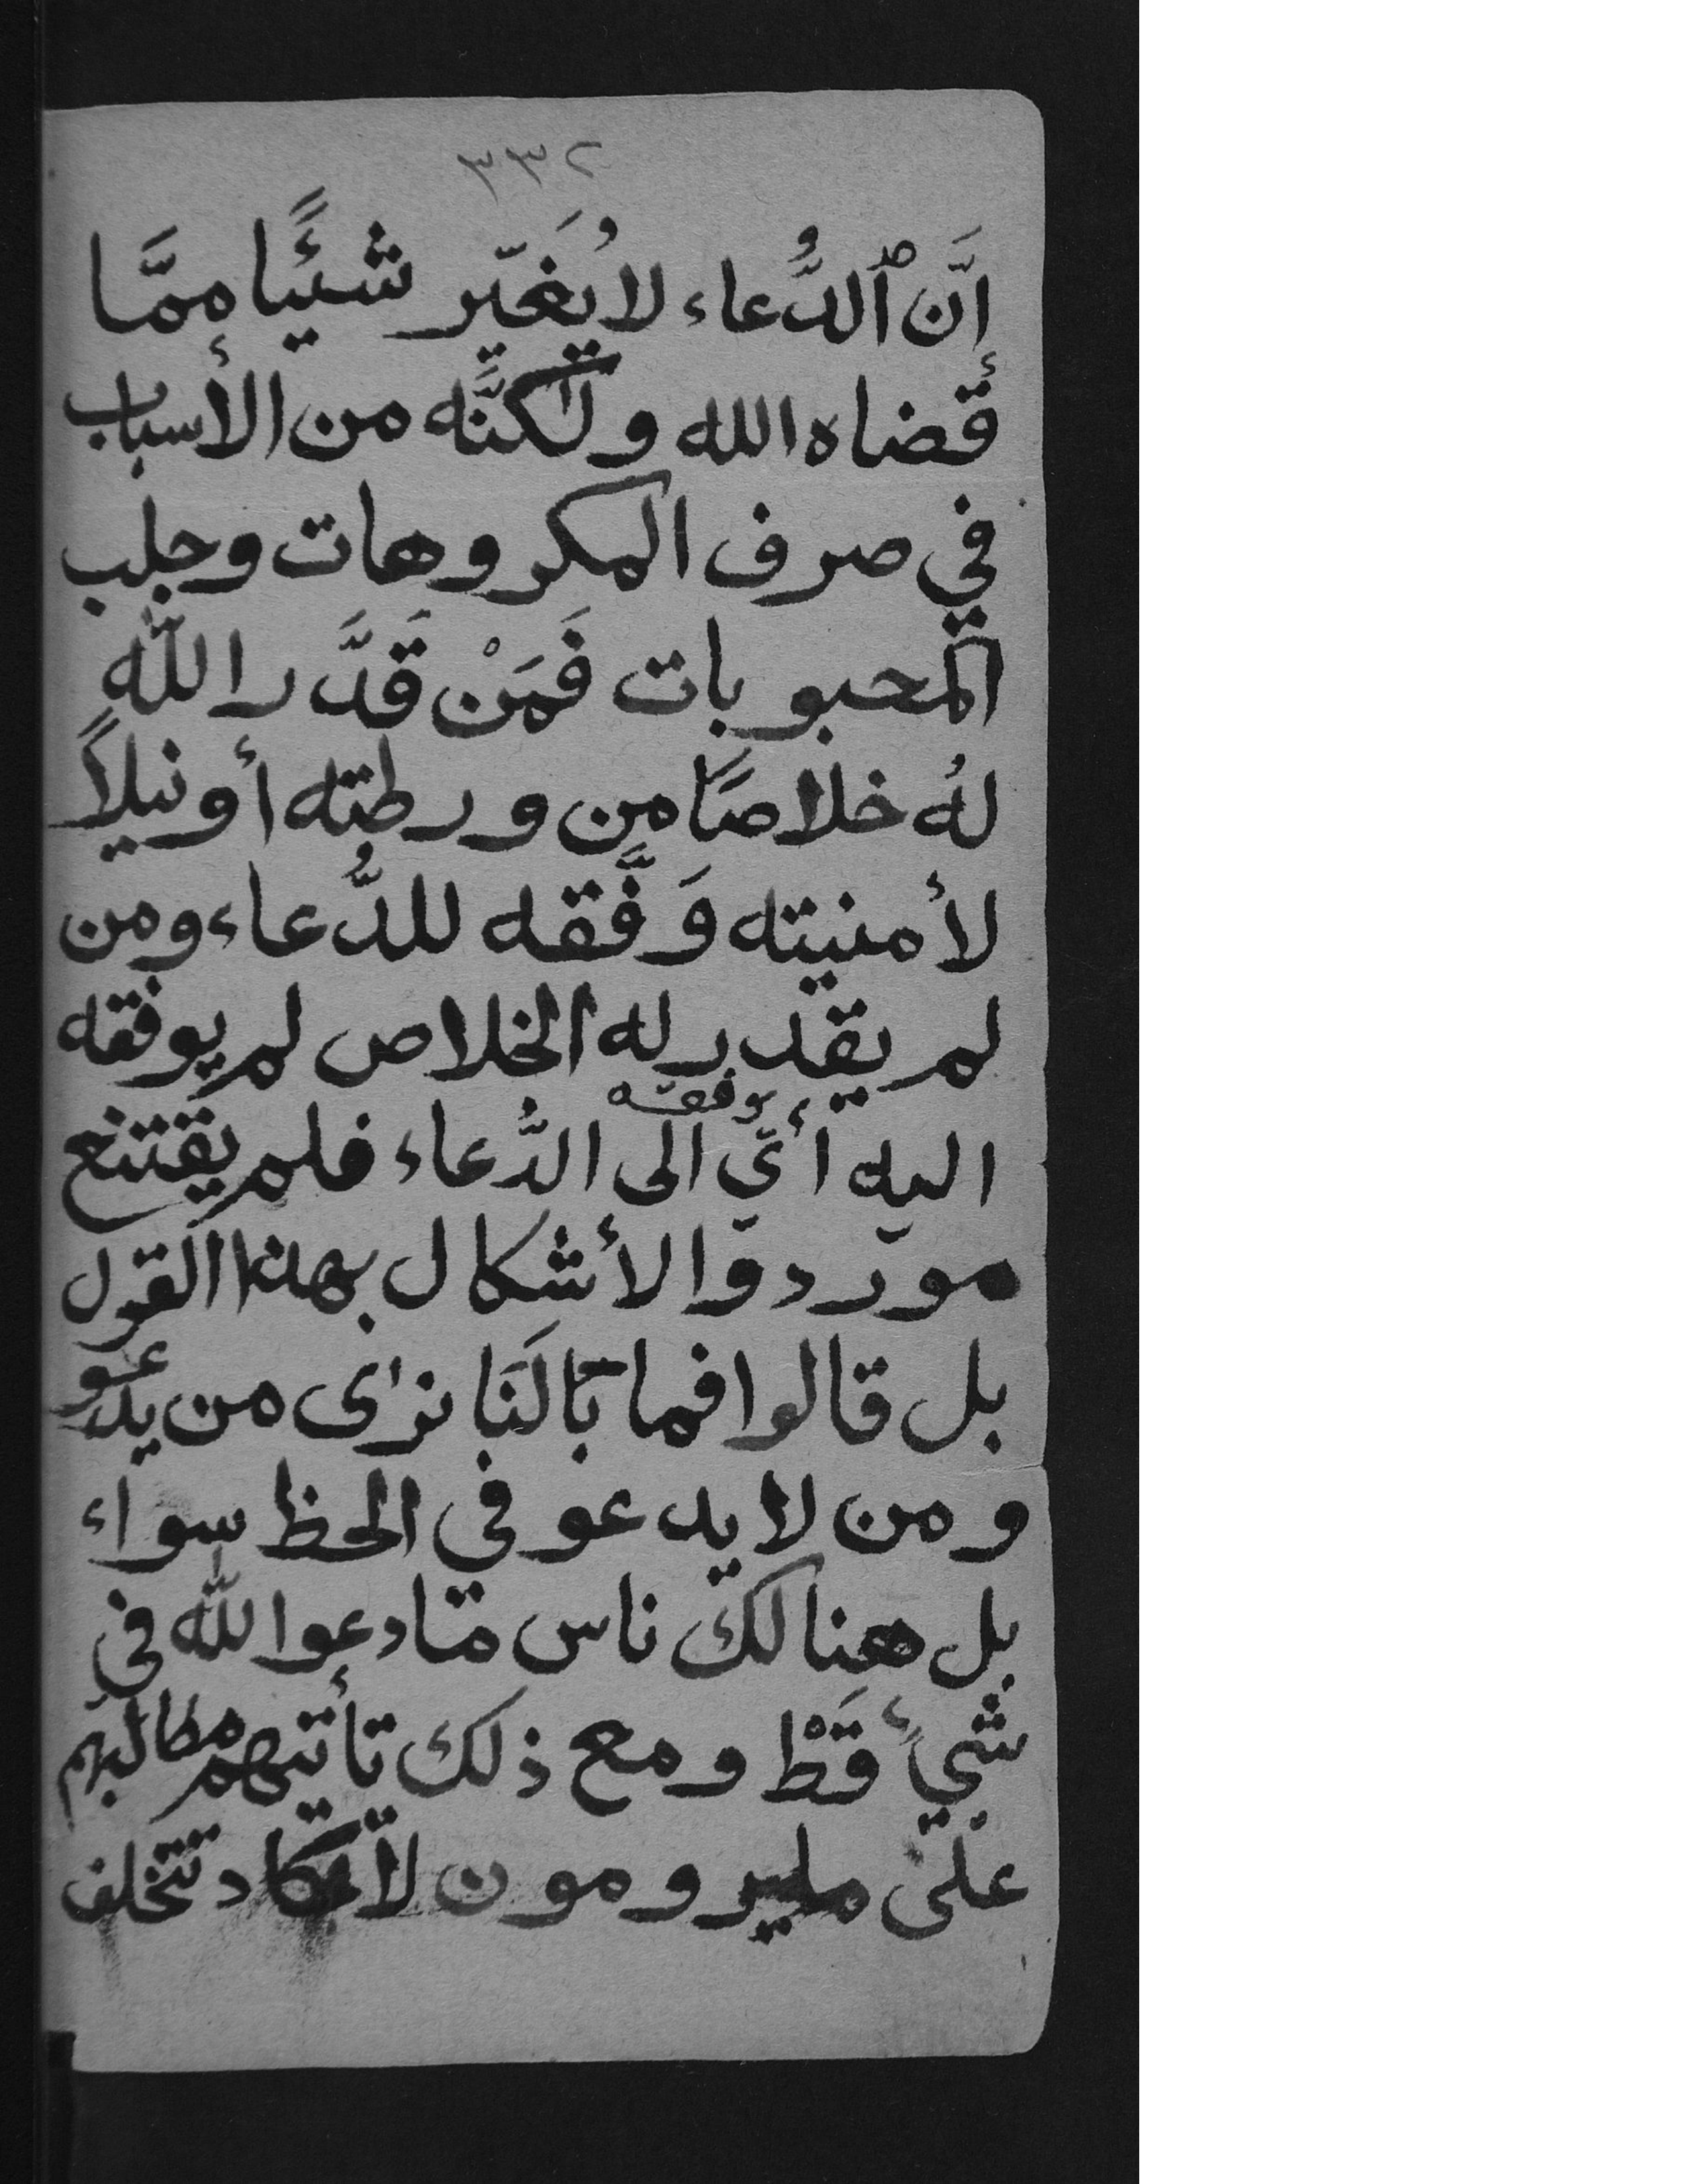 ٣٣٢
إنَّ ٱلدُّعاء لا يُغَيّر شيئًا ممَّا
قضاه الله ولٰكنَّه من الأسباب
في صرف المكروهات وجلب
المحبوبات فَمَنْ قَدَّر الله
لهُ خلاصًا من ورطته أو نيلاً
لأمنيته وَفَّقه للدُّعاء ومن
لم يقدر له الخلاص لم يوفقه
توفقه
اليه أيّ الى الدُّعاء فلم يقتنع
موردوا الأشكال بهذا القول
بل قالوا فما بَالَنَا نرٰى من يدعو
ومن لا يدعو في الحظ سواء
بل هنالك ناس مّا دعوا الله في
شيءٍ قَطْ ومع ذلك تأتيهم مطالبهم
على ويرومون لا تكاد تتخلف